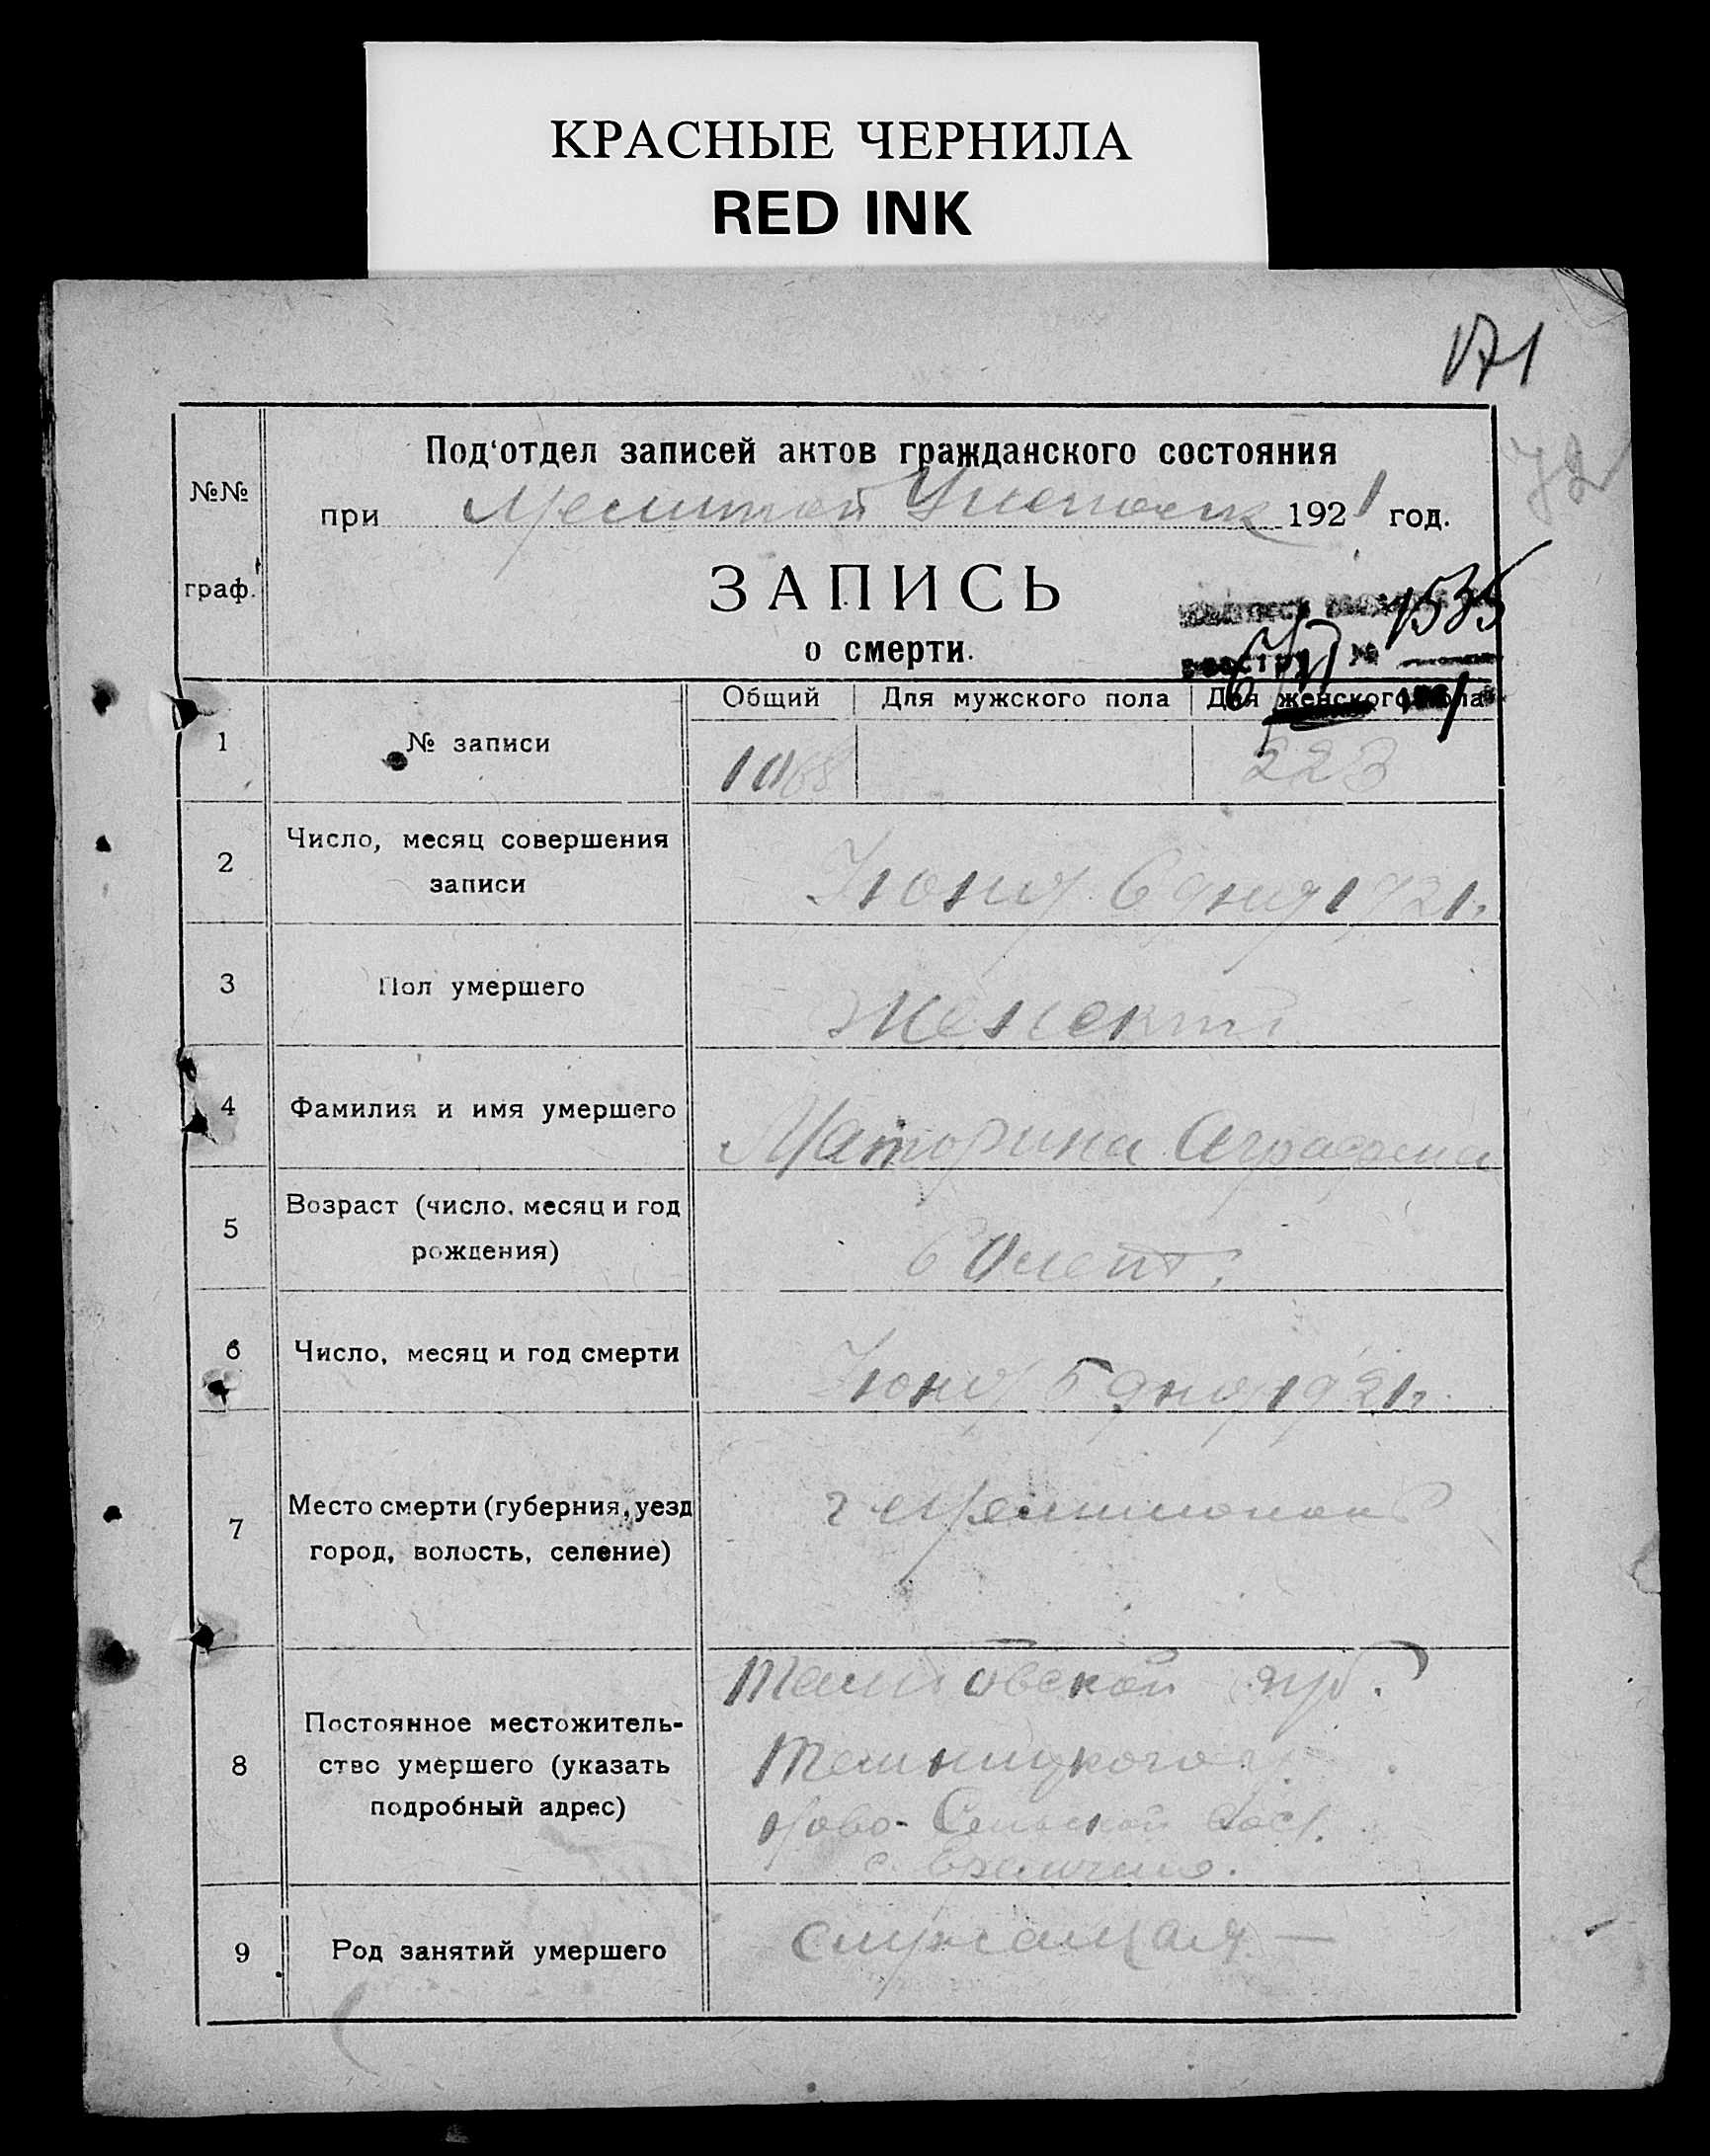 КРАСНЫЕ ЧЕРНИЛА
RED INK
171
72
Под‘отдел записей актов гражданского состояния
№№
при 1921 год.
граф.
ЗАПИСЬ
1535
о смерти.
№
Общий Для мужского пола Для женского пола
1 № записи 1068 223
2 Число, месяц совершения
записи
Июня 6 дня 1921.
3 Пол умершего
Женский
4 Фамилия и имя умершего
Маторина Аграфена
5 Возраст (число, месяц и год
рождения)
60 лет.
6 Число, месяц и год смерти
Июня 5 дня 1921г.
7 Место смерти (губерния, уезд
город, волость, селение)
г
8 Постоянное местожитель-
ство умершего (указать
подробный адрес)
Тамбовской губ.
Темницкого у.
Ново- вол.
с.
9 Род занятий умершего
Служащая —